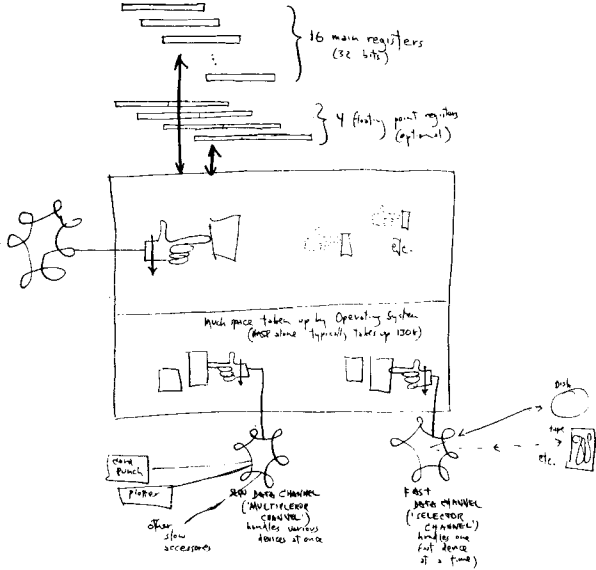 16 main registers
(32 bits)
4 floating point registers
(optional)
etc.
Much space taken up by Operating System
(HASP alone typically takes up 130K)
Disk
tape
etc.
card
punch
plotter
other
slow
accessories
SLOW DATA CHANNEL
('MULTIPLEXOR
CHANNEL')
handles various
devices at once
FAST
DATA CHANNEL
('SELECTOR
CHANNEL')
handles one
fast device
at a time)